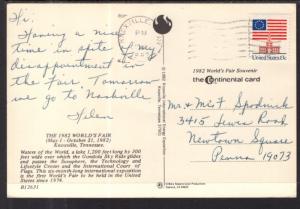 Hi.
Having a nice
time in spite of my
disappointment in
the Fair. Tomorrow
we go to Nashville
Helen
THE 1982 WORLD'S FAIR
(May 1 - October 31, 1982)
Knoxville, Tennessee.
Waters of the World, a lake 1,200 feet long by 300
feet wide over which the Gondola Sky Ride glides
and passes the Sunsphere, the Technology and
Lifestyle Center and the International Court of
Flags. This six-month-long international exposition
is the first World's Fair to be held in the United
States since 1974.
B12631
KNOXVILLE
PM
1982 World's Fair Souvenir
the Continental card
USA 13c
Mr & Mrs I Spodnick
3415 Lewis Road
Newtown Square
Penna 19073